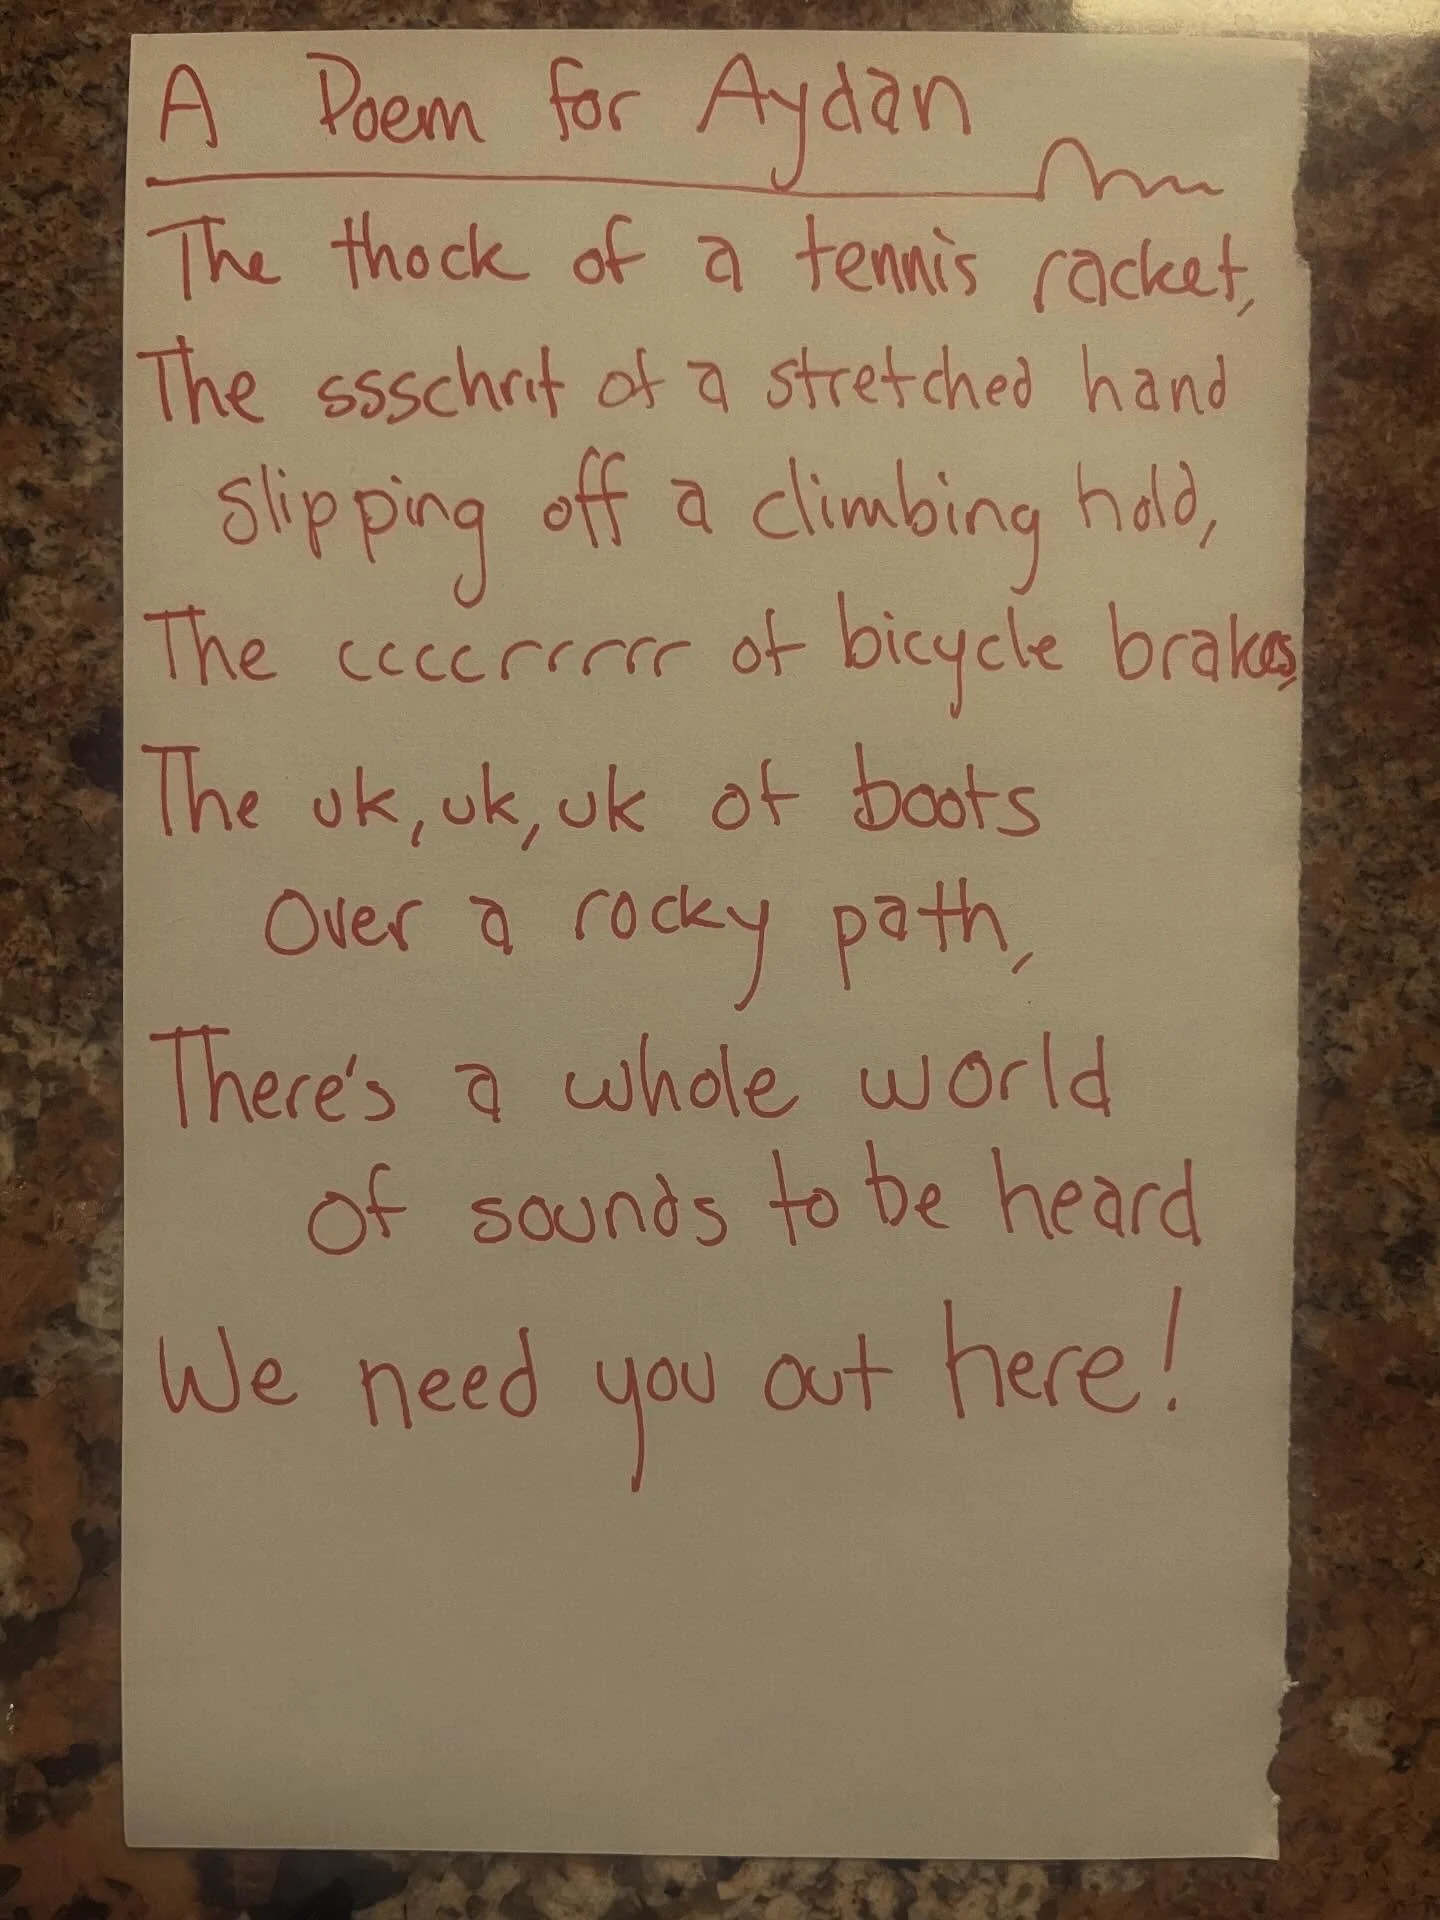 A Poem for Aydan
The thock of a tennis racket,
The ssschrit of a stretched hand
slipping off a climbing hold,
The ccccrrrrr of bicycle brakes,
The uk, uk, uk of boots
Over a rocky path,
There's a whole world
Of sounds to be heard
We need you out here!